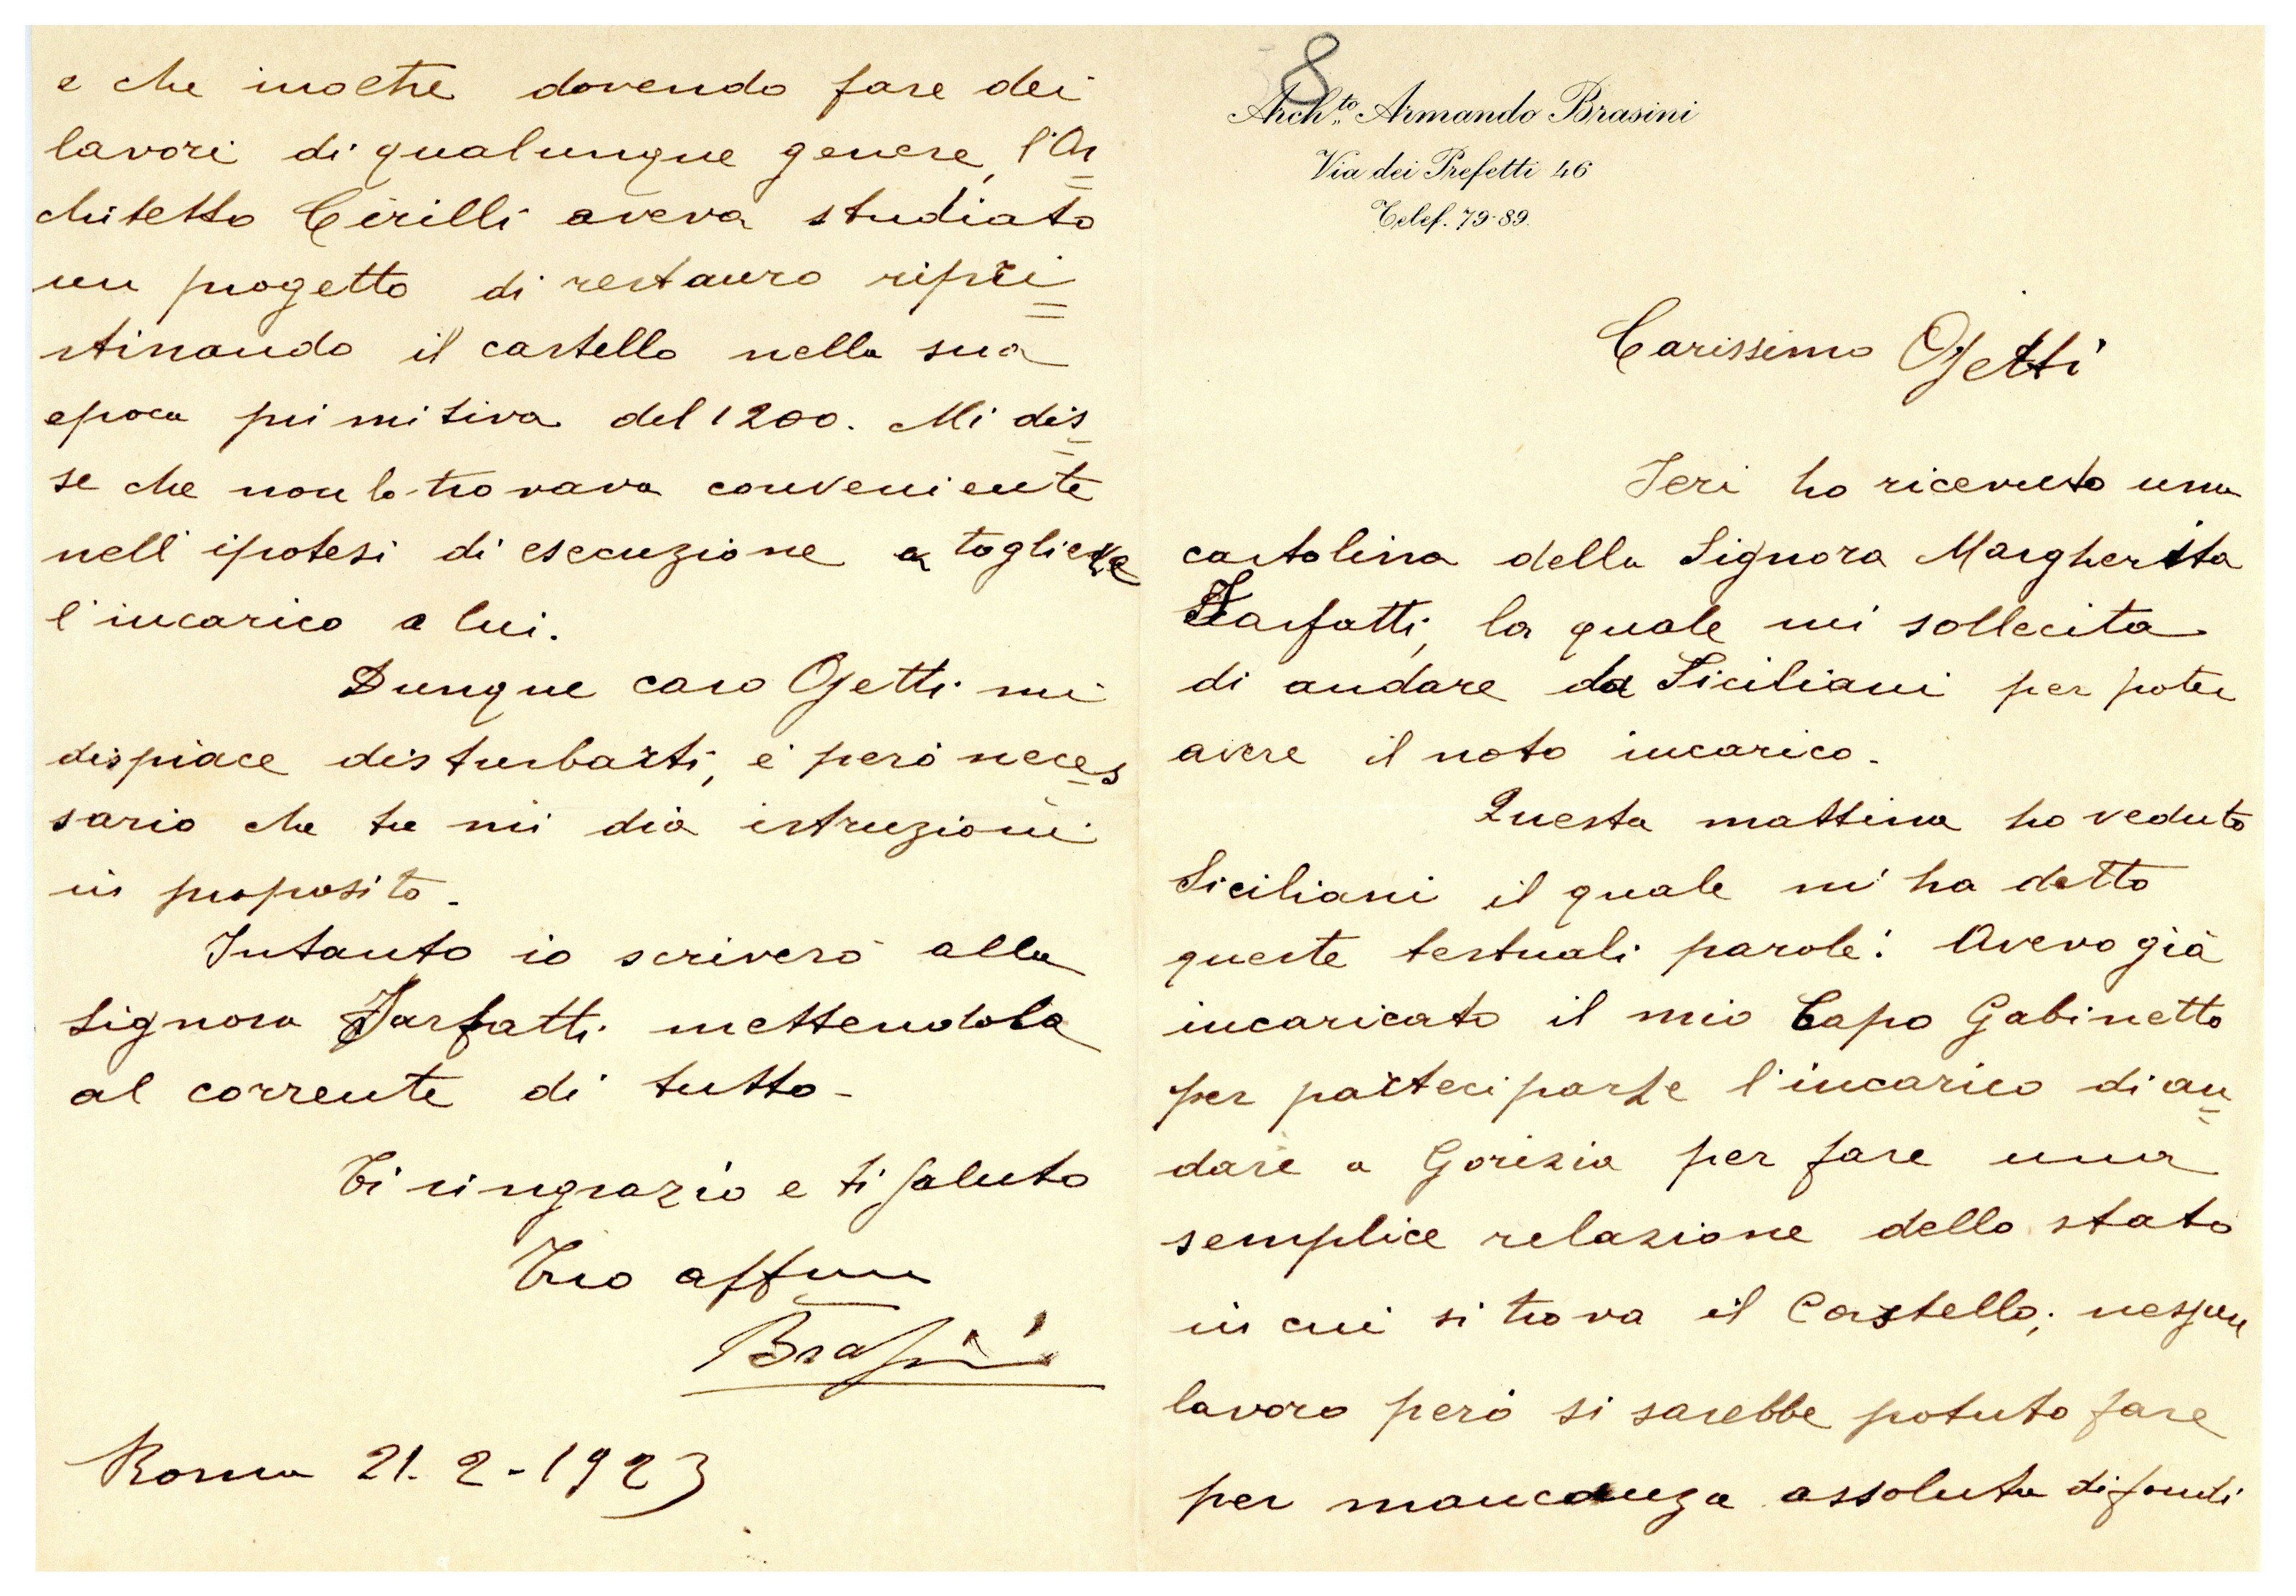 8
Arch.to Armando Brasini
Via dei Prefetti 46
Telef. 79-89.
Carissimo Ojetti
Ieri ho ricevuto una
cartolina della Signora Margherita
Sarfatti, la quale mi sollecita
di andare da Siciliani per poter
avere il noto incarico.
Questa mattina ho veduto
Siciliani il quale mi ha detto
queste testuali parole: Avevo già
incaricato il mio Capo Gabinetto
per parteciparle l'incarico di an=
dare a Gorizia per fare una
semplice relazione dello stato
in cui si trova il Castello; nessun
lavoro però si sarebbe potuto fare
per mancanza assoluta di fondi
e che inoltre dovendo fare dei
lavori di qualunque genere, l'Ar=
chitetto Cirilli aveva studiato
un progetto di restauro ripri=
stinando il castello nella sua
epoca primitiva del 1200. Mi dis=
se che non lo trovava conveniente
nell'ipotesi di esecuzione a togliere
l'incarico a lui.
Dunque caro Ojetti mi
dispiace disturbarti, è però neces=
sario che tu mi dia istruzioni
in proposito.
Intanto io scriverò alla
Signora Sarfatti mettendola
al corrente di tutto.
Ti ringrazio e ti saluto
Tuo affmo
Brasini
Roma 21-2-1923